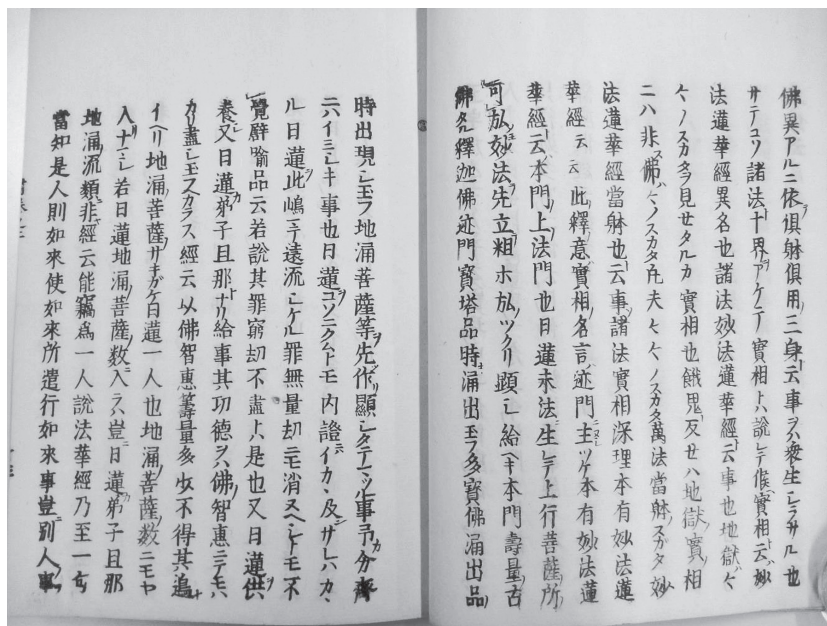 佛異アルニ依倶躰倶用三身云事ヲハ衆生シラサル也
サテコソ諸法十界アケテ實相トハ說レテ候實相云妙
法蓮華經異名也諸法妙法蓮華經云事也地獄ハ
地獄ノスカタヲ見セタルカ實相也餓鬼反セハ地獄實相
ニハ非佛ハ佛ノスカタ凡夫ハ凡夫ノスカタ萬法當躰スガタ妙
法蓮華經當躰也云事諸法實相深理本有妙法蓮
華經云云此釋意實相名言迹門主ツケ本有妙法蓮
華經云本門上法門也日蓮末法生レテ上行菩薩所
可弘妙法先立粗ホ弘ツクリ顯シ給ヘキ本門壽量古
佛名釋迦佛迹門寶塔品時涌出玉フ多寶佛涌出品
時出現シ玉フ地涌菩薩等先作顯シタテマツル事予分齊
ニハイミシキ事也日蓮コソニクムトモ内證イカヽ及サレハカヽ
ル日蓮此嶋マテ遠流シケル罪無量劫ニモ消ヌヘシトモ不
覺譬喩品云若說其罪窮劫不盡トハ是也又日蓮供
養又日蓮弟子且那ナリ給事其功德ヲハ佛智惠ニテモハ
カリ盡シ玉スカラス經云以佛智惠籌量多少不得其邊
イヘリ地涌菩薩サキガケ日蓮一人也地涌菩薩數ニモヤ
入ナマシ若日蓮地涌菩薩數入ラハ豈日蓮弟子且那
地涌流類非經云能竊爲一人說法華經乃至一句
當知是人則如來使如來所遣行如來事豈別人事